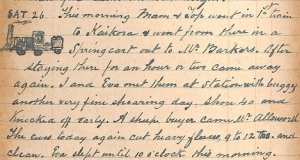 SAT 26. This morning Mam & Pop went in 1st train
to Kaikora & went from there in a
Springcart out to Mr Barkers. After
staying there for an hour or two came away
again. I and Eva met them at Station with buggy
another very fine shearing day. Shore 40 and
knocked of early. A sheep buyer came Mr Allsworth
The ewes today again cut heavy fleeces, 9 to 12 lbs. and
clean. Eva slept until 10 o'clock this morning.